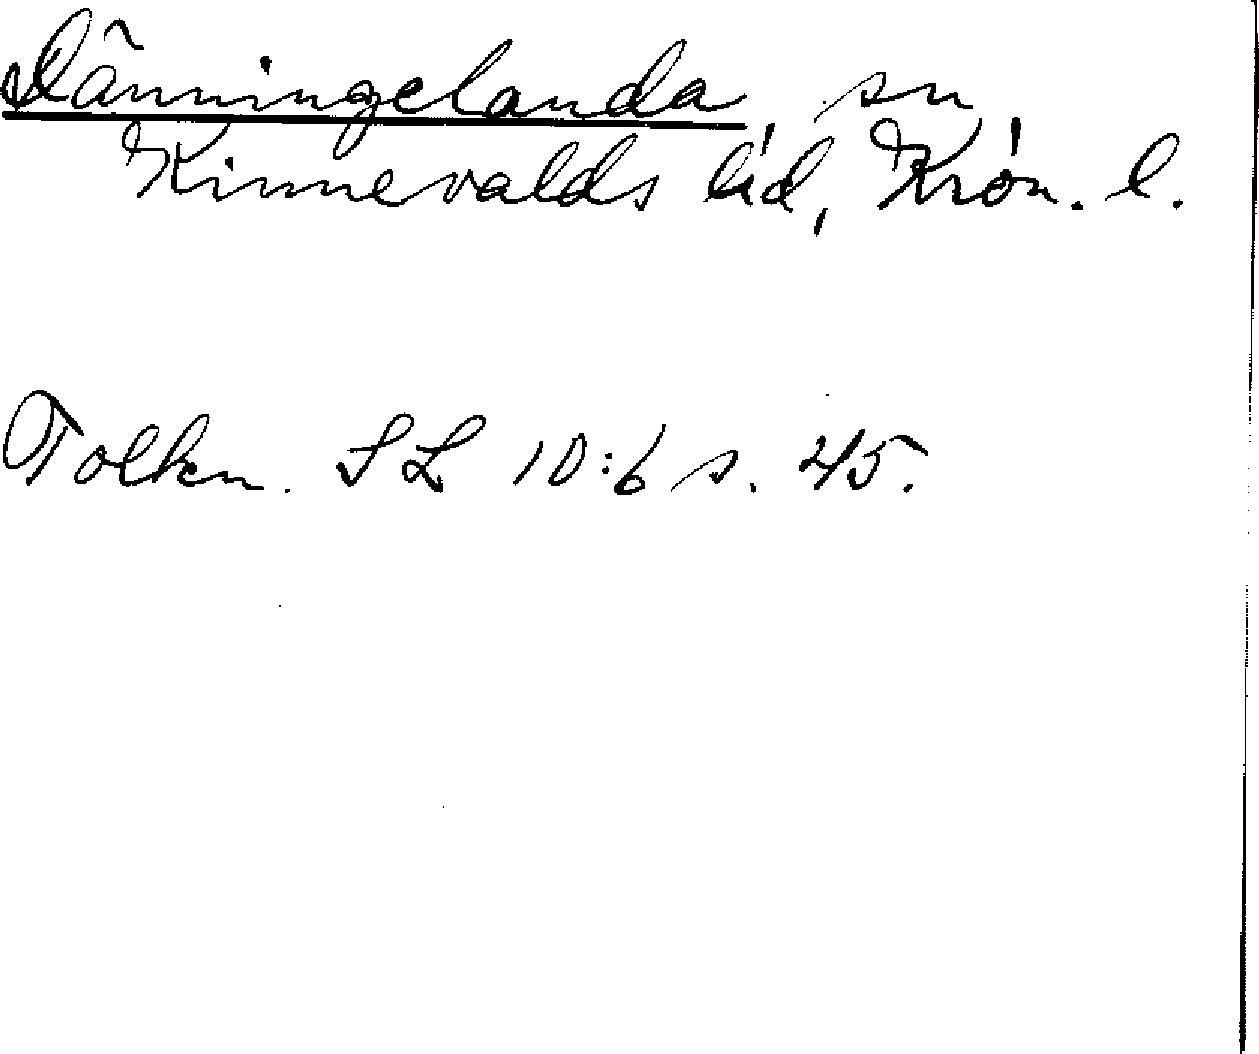 Dänningelanda, sn
Kinnevalds hd, Kron. l.
Tolkn. SL 10:6 s. 45.